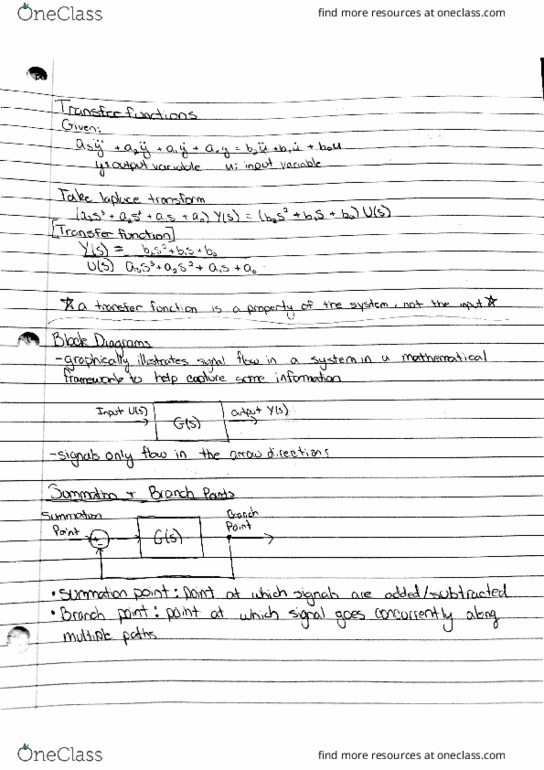 OneClass
find more resources at oneclass.com
Transfer functions
Given:
a₃y⃛ + a₂ÿ + a₁ẏ + a₀y = b₂ü + b₁u̇ + b₀u
y: output variable u: input variable
Take laplace transform
(a₃s³ + a₂s² + a₁s + a₀) Y(s) = (b₂s² + b₁s + b₀) U(s)
[Transfer function]
Y(s) = b₂s² + b₁s + b₀
U(s) a₃s³ + a₂s² + a₁s + a₀
☆ a transfer function is a property of the system, not the input ☆
Block Diagrams
- graphically illustrates signal flow in a system in a mathematical
framework to help capture some information
Input U(s) G(s) output Y(s)
- signals only flow in the arrow directions
Summation + Branch Points
Summation Branch
Point G(s) Point
• Summation point: point at which signals are added/subtracted
• Branch point: point at which signal goes concurrently along
multiple paths
OneClass
find more resources at oneclass.com